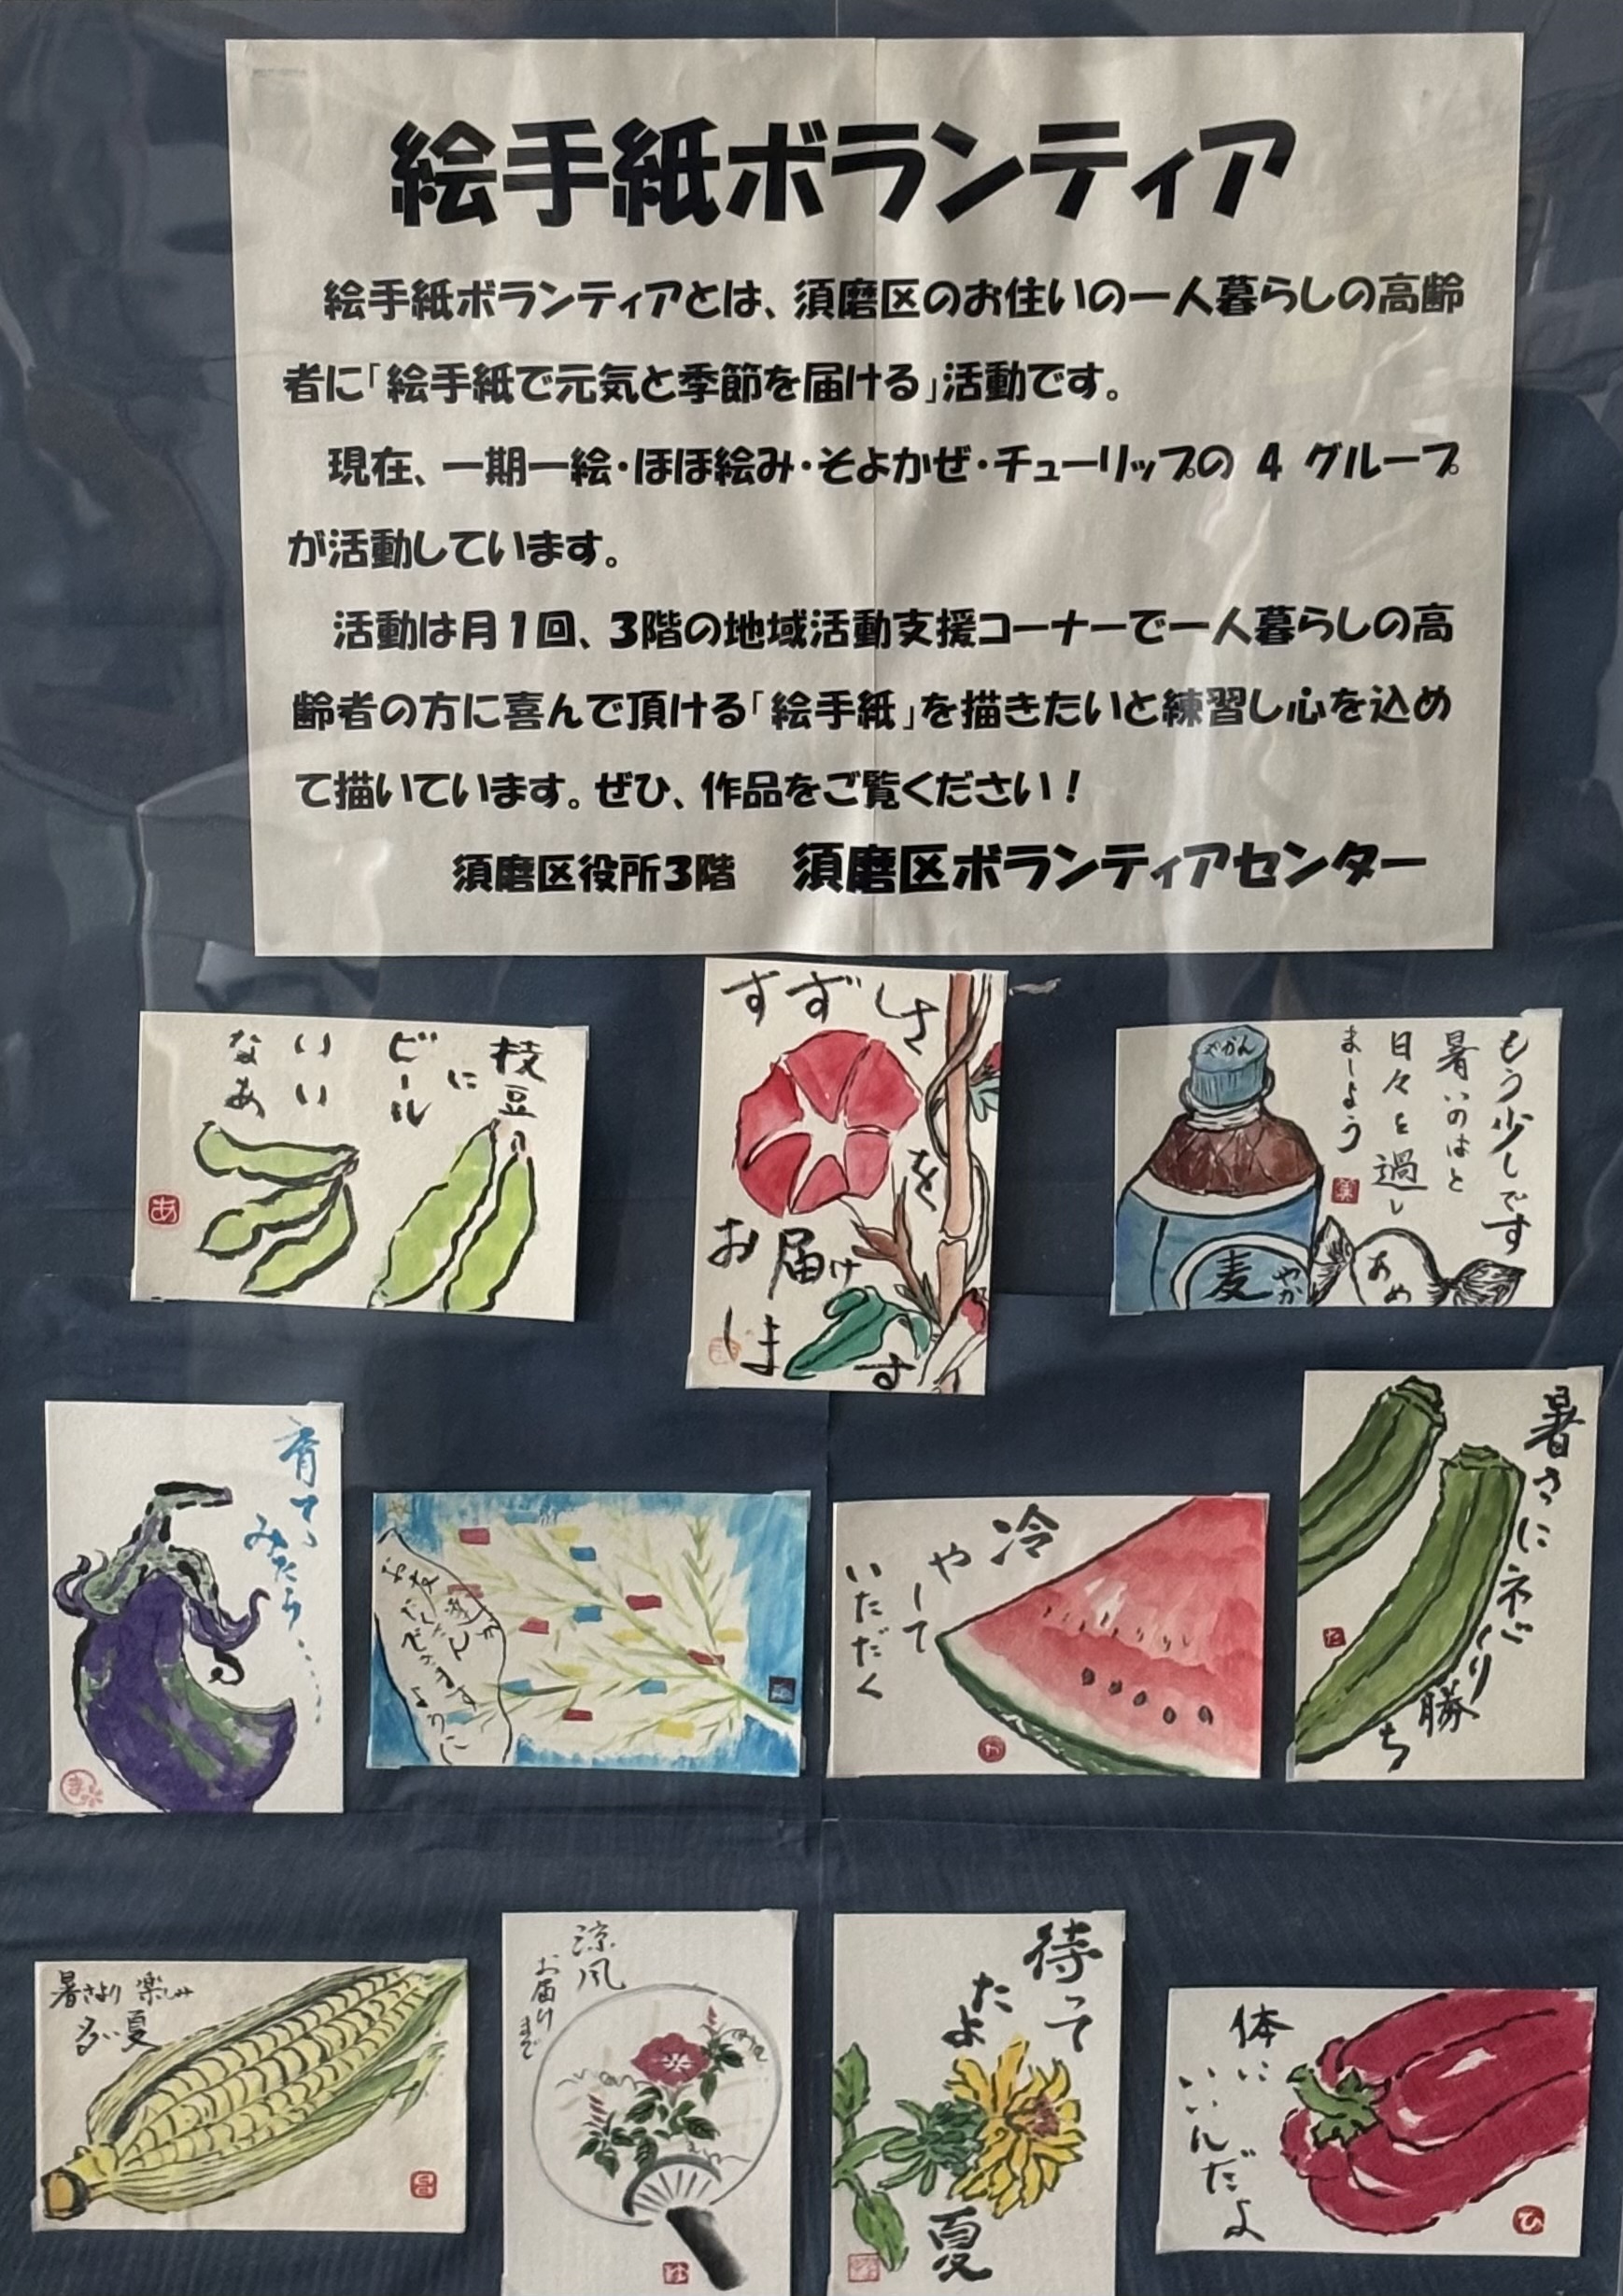 絵手紙ボランティア
絵手紙ボランティアとは、須磨区のお住いの一人暮らしの高齢
者に「絵手紙で元気と季節を届ける」活動です。
現在、一期一絵・ほほ絵み・そよかぜ・チューリップの 4 グループ
が活動しています。
活動は月1回、3階の地域活動支援コーナーで一人暮らしの高
齢者の方に喜んで頂ける「絵手紙」を描きたいと練習し心を込め
て描いています。ぜひ、作品をご覧ください！
須磨区役所3階　須磨区ボランティアセンター
枝豆
に
ビール
いい
なあ
あ
すずしさ
を
お届け
します
もう少しです
暑いのはと
日々を過し
ましょう
やかん
麦
やか
あめ
育てて
みたら……
ま
お友
だちが
できますように
冷
やして
いただく
暑さにネバり勝ち
た
暑さより楽しみ
多い夏
涼風
お届け
まで
待って
たよ
夏
体に
いいんだよ
ひ